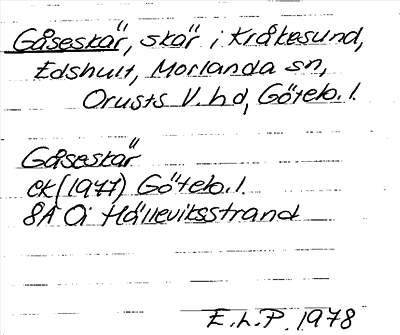 Gåseskär, skär i Kråkesund,
Edshult, Morlanda sn,
Orusts V. hd, Göteb. l.
Gåseskär
ek (1977) Göteb. l.
8A Öi Hälleviksstrand
E.h.P. 1978